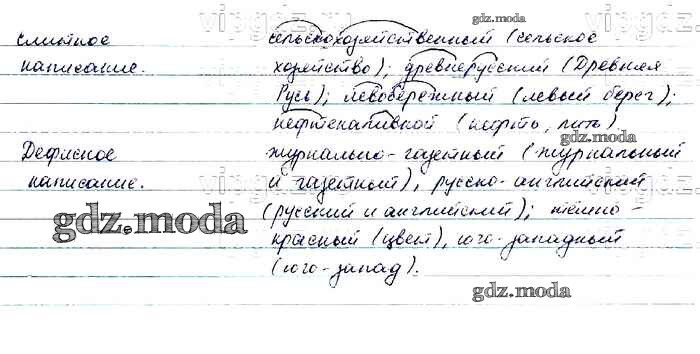 gdz.moda
vipgdz vipgdz
слитное сельскохозяйственный (сельское
написание. хозяйство); древнерусский (Древняя
Русь); левобережный (левый берег);
нефтеналивной (нефть, лить)
gdz.moda
Дефисное журнально-газетный (журнальный
написание. и газетный), русско-английский
gdz.moda
(русский и английский); темно-
красный (цвет), юго-западный
(юго-запад).
gdz.moda